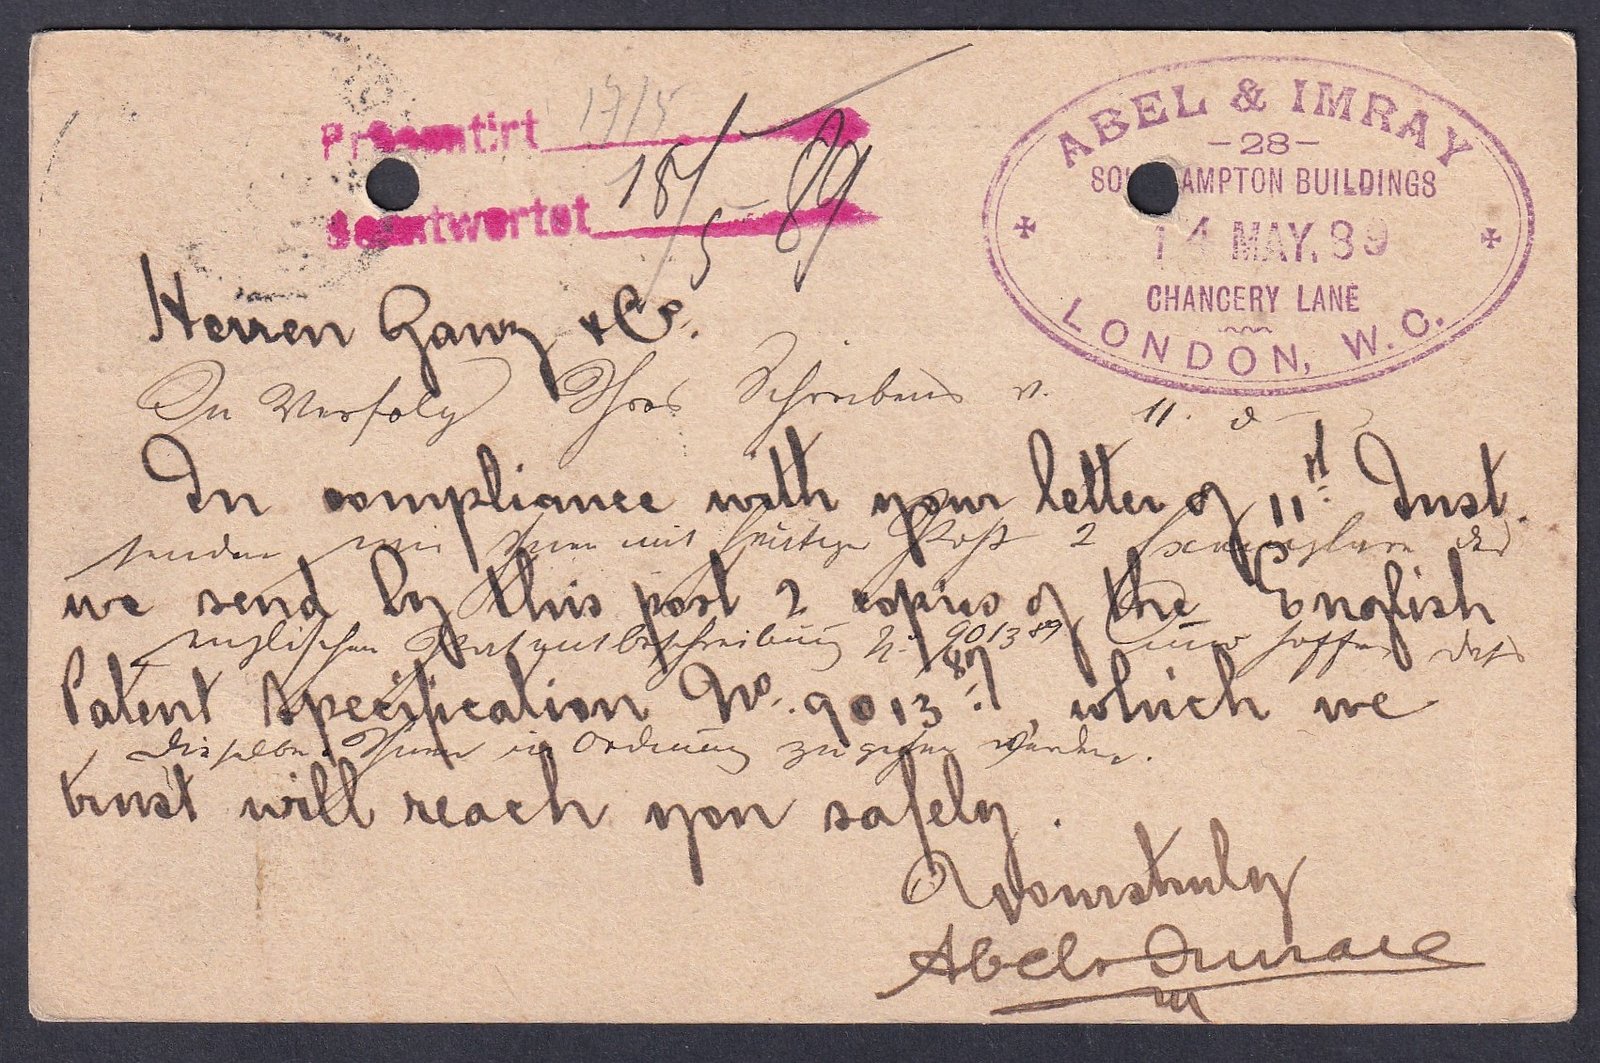 Präsentirt 17/5
Beantwortet 18/5 89
ABEL & IMRAY
-28-
SOU AMPTON BUILDINGS
14 MAY. 89
CHANCERY LANE
LONDON, W.C.
Herren Ganz & Co.
In Verfolg Ihres Schreibens v. 11. d
In compliance with your letter of 11th Inst.
senden wir Ihnen mit heutiger Post 2 Exemplare der
we send by this post 2 copies of the English
englischen Patentbeschreibung N. 9013 89 und hoffen dass
Patent Specification No. 9013 87, which we
dieselben Ihnen in Ordnung zugehen werden.
trust will reach you safely.
Yours truly
Abel & Imray